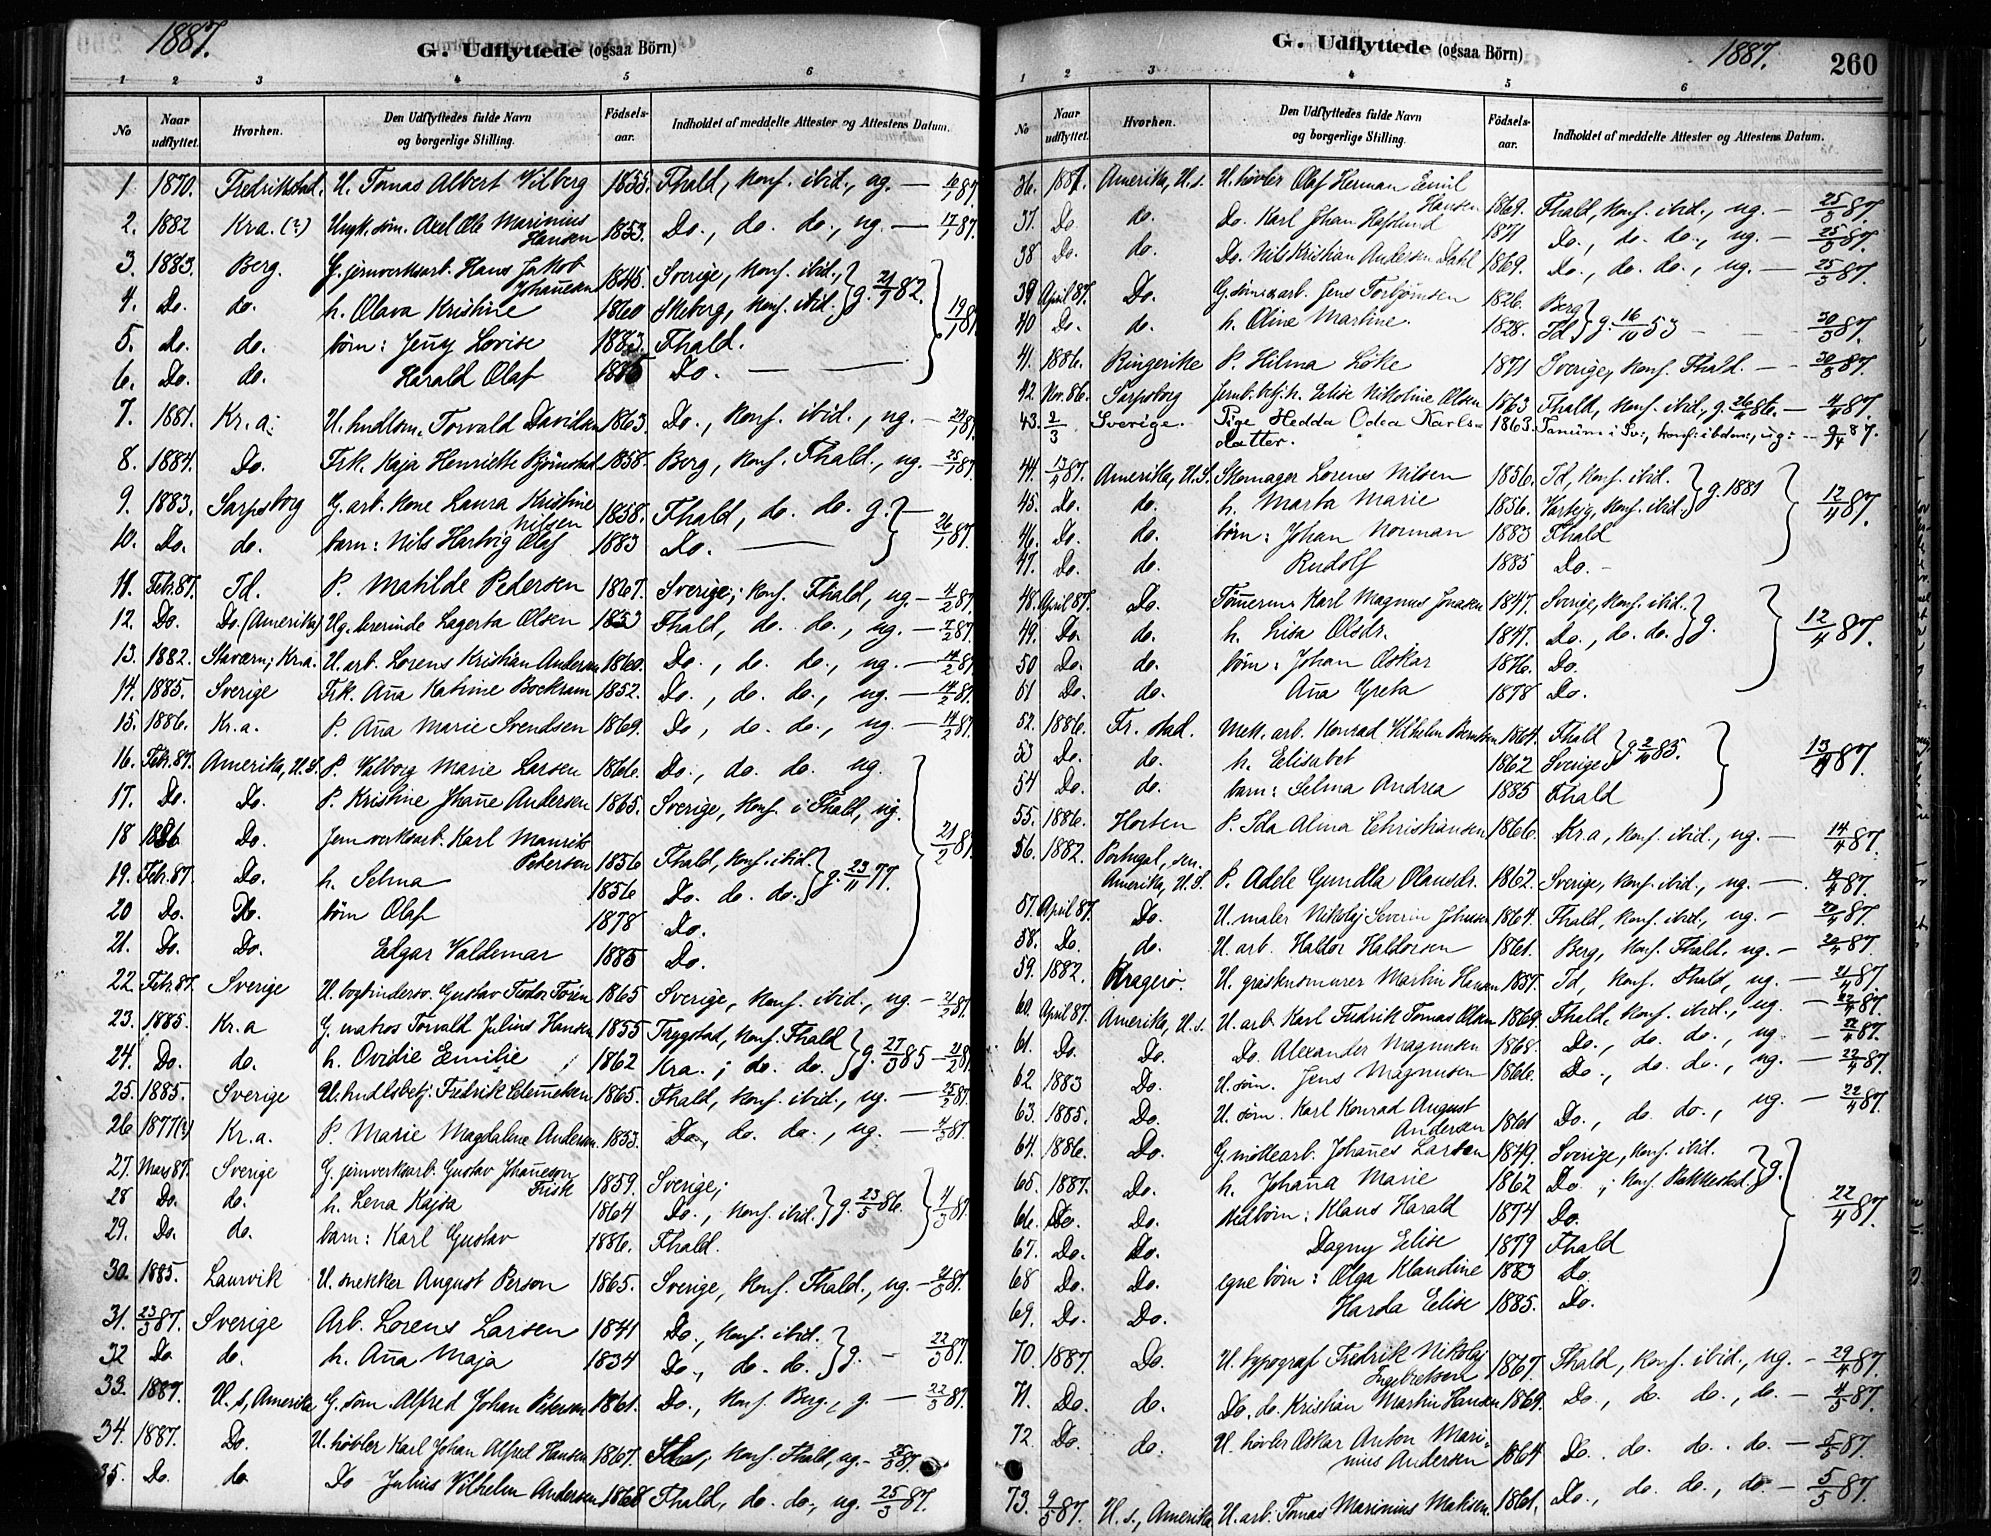 1887.
G. Udflyttede (ogsaa Börn)
1 2 3 4 5 6
No
Naar udflyttet.
Hvorhen.
Den Udflyttedes fulde Navn og borgerlige Stilling.
Födsels-aar.
Indholdet af meddelte Attester og Attestens Datum.
1 1870. Fredrikstad. U. Tomas Albert Vilberg 1855. Fhald, konf. ibid., ug. —
2. 1882 Kra. (?) Ungk. søm. Axel Ole Marinius Hansen 1853. Do., do. do., ug. — 17/1 87.
3. 1883. Berg. G. jernverksarb. Hans Jakob Johansen 1846. Sverige, konf. ibid.,
4. Do. do. h. Olava Kristine 1860 Skeberg, konf. ibid. g. 82. 19/1 87
5. do. do. børn: Jenny Lovise 1883. Fhald.
6. Do. do. Harald Olaf Do. —
7. 1881. Kr.a. U. hndlsm. Torvald Davidsen 1863. Do., konf. ibid., ug. — 24/1 87.
8. 1884. Do. Frk. Kaja Henriette Bjørnstad 1858. Berg, konf. Fhald., ug. — 25/1 87.
9. 1883. Sarpsborg G. arb. kone Laura Kristine Nilsen 1858. Fhald, do. do. g. — 26/1 87.
10. Do. do. barn: Nils Hartvig Olaf 1883 Do. —
11. Febr. 87. Id. P. Matilde Pedersen 1867. Sverige; konf. Fhald, ug. — 4/2 87.
12. Do. Do. (Amerika) Ug. lærerinde Lagerta Olsen 1853 Fhald, do. do., ug. — 7/2 87.
13. 1882. Staværn; Kr.a. U. arb. Lorens Kristian Andersen 1860. Do., do. do., ug. — 14/2 87
14. 1885. Sverige Frk. Anna Katrine Bockrum 1852. Do., do. do., ug. — 14/2 87.
15. 1886. Kr.a. P. Anna Marie Svendsen 1869. Do., do. do., ug — 14/2 87.
16. Febr. 87. Amerika, U.S. P. Valborg Marie Larsen 1866. Do., do. do. ug.
17. Do. Do. P. Kristine Johanne Andersen 1865. Sverige, konf. i Fhald, ug.
18 1886 Do. Jernverksarb. Karl Maurits Petersen 1856 Fhald, konf. ibid. 21/2 87.
19. Febr. 87. Do. h. Selma 1856 Do. do. do. g. 23/11 77.
20 Do. Do. børn Olaf 1878 Do.
21. Do. Do. Edgar Valdemar 1885 Do.
22. Febr. 87. Sverige U. bogbindersv. Gustav Teodor Toren 1865 Sverige, konf. ibid., ug. — 21/2 87.
23. 1885. Kr.a G. matros Torvald Julius Hansen 1855 Trygstad, konf. Fhald
24. Do. do. h. Ovidie Emilie 1862 Kra.; do. do. g. 27/3 85 — 21/2 87
25. 1885. Sverige U. hndlsbetj. Fredrik Clemetsen 1865. Fhald, konf. ibid., ug. — 25/2 87.
26 1877(?) Kr.a. P. Marie Magdalene Andersen 1853. Do., do. do., ug. — 4/3 87.
27. Mars 87. Sverige G. jernverksarb. Gustav Johanneson Frisk 1859. Sverige;
28 Do. do. h. Lena Kajsa 1864 Do., konf. ibid. g. 23/5 86. 11/3 87.
29. Do. do. barn: Karl Gustav 1886. Fhald.
30. 1885. Laurvik U. snekker August Person 1865. Sverige, konf. Fhald., ug. — 21/3 87.
31. 23/3 87. Sverige Arb. Lorens Larsen 1841 Do., konf. ibid.
32 Do do. h. Anna Maja 1834 Do., do. do. g. — 22/3 87.
33. 1887. U.s., Amerika G. søm. Alfred Johan Petersen 1861. Do., konf. Berg., g — 22/3 87.
34. 1887. Do. U. høvler Karl Johan Alfred Hansen 1867. konf. Fhald, ug. — 25/3 87.
35. Do. do. Do Julius Vilhelm Andersen 1868 Fhald, do. do., ug. 25/3 87.
G. Udflyttede (ogsaa Börn)
1887.
260
1 2 3 4 5 6
No
Naar udflyttet.
Hvorhen.
Den Udflyttedes fulde Navn og borgerlige Stilling.
Födsels-aar.
Indholdet af meddelte Attester og Attestens Datum.
36. 1887. Amerika, U.s. U. høvler Olaf Herman Emil Hansen 1869. Fhald, konf. ibid., ug. — 25/3 87.
37. Do. do. Do. Karl Johan Hafslund 1871 Do., do. do., ug. — 25/3 87.
38 Do. do. Do. Nils Kristian Andersen Dahl 1869. Do., do. do., ug. — 25/3 87.
39 April 87. Do. G. Jens Torbjørnsen 1826. Berg
40 Do. do. h. Oline Martine. 1828. Id g. 16/10 53 — 30/3 87.
41. 1886. Ringerike P. Hilma Løke 1871 Sverige, konf. Fhald. — 30/3 87.
42. Nov. 86. Sarpsborg Jernb. betj. h. Elise Nikoline Olsen 1863 Fhald, konf. ibid., g. 86. — 4/4 87.
43. 2/3 Sverige. Pige Hedda Odea Karls-datter. 1863. Tanum i Sv., konf. ibdem., ug. — 9/4 87.
44. 13/4 87. Amerika, U.S. Skomager Lorens Nilsen 1856. Id, konf. ibid.
45. Do. do. h. Marta Marie 1856. Varteig, konf. ibid. g. 1881 12/4 87.
46. Do. do. børn: Johan Norman 1883 Fhald
47. Do. do. Rudolf 1885 Do. —
48. April 87. Do. Tømmerm. Karl Magnus Jonasen 1847. Sverige, konf. ibid.
49. Do. do. h. Lisa Olsdr. 1847. Do., do. do. g. 12/4 87.
50 Do. do. børn: Johan Oskar 1876. Do.
51 Do. do. Anna Greta 1878 Do.
52. 1886. Fr.stad. Mek. arb. Konrad Vilhelm Berntsen 1864. Fhald
53 Do. do. h. Elisabet 1862 Sverige g. 85. 13/4 87.
54 Do. do. barn: Selma Andrea 1885 Fhald
55. 1886. Horten P. Ida Alma Christiansen 1866. Kr.a, konf. ibid, ug. — 14/4 87.
56. 1882. Portugal, sen. Amerika, U.S. P. Adele Gundla Olausdr. 1862. Sverige, konf. ibid., ug. — 19/4 87.
57. April 87. Do. U. maler Nikolaj Severin Johnsen 1864. Fhald, konf. ibid, ug. — 20/4 87
58. Do. do. U. arb. Haldor Haldorsen 1861. Berg, konf. Fhald. ug. — 20/4 87.
59. 1882. Kragerø. U. gråstensmurer Martin Hansen 1857. Id, konf. Fhald, ug. — 21/4 87
60. April 87. Amerika, U.s. U. arb. Karl Fredrik Tomas Olsen 1869. Fhald, konf. ibid., ug. — 22/4 87.
61. Do. Do. Do. Alexander Magnusen 1868. Do., do. do., ug — 22/4 87.
62 1883 Do. U. søm. Jens Magnusen 1866. Do., do. do., ug. — 22/4 87.
63. 1885. Do. U. søm. Karl Konrad August Andersen 1861 Do., do. do., ug. — 22/4 87.
64. 1886. Do. G. møllearb. Johannes Larsen 1849. Sverige, konf. ibid.
65. 1887. Do. h. Johanna Marie 1862 Do.; konf. Rakkestad. g.
66. Do. Do. stedbørn: Klaus Harald 1874 Do. 22/4 87.
67. Do. Do. Dagny Elise 1879 Fhald
68 Do. Do. egne børn: Olga Klaudine 1883 Do.
69. Do. Do. Harda Elise 1885. Do.
70. 1887. Do. U. typograf Fredrik Nikolaj Ingebretsen 1867. Fhald, konf. ibid., ug. — 29/4 87.
71. Do. do. Do. do. Kristian Martin Hansen 1869. Do., do. do., do. — 4/5 87.
72 Do. do. U. høvler Oskar Anton Mari-nius Andersen 1864 Do. do. do. do. — 5/5 87.
73. 9/5 87. U.s., Amerika U. arb. Tomas Marinius Maksen. 1861. Do., do. do., do. — 5/5 87.